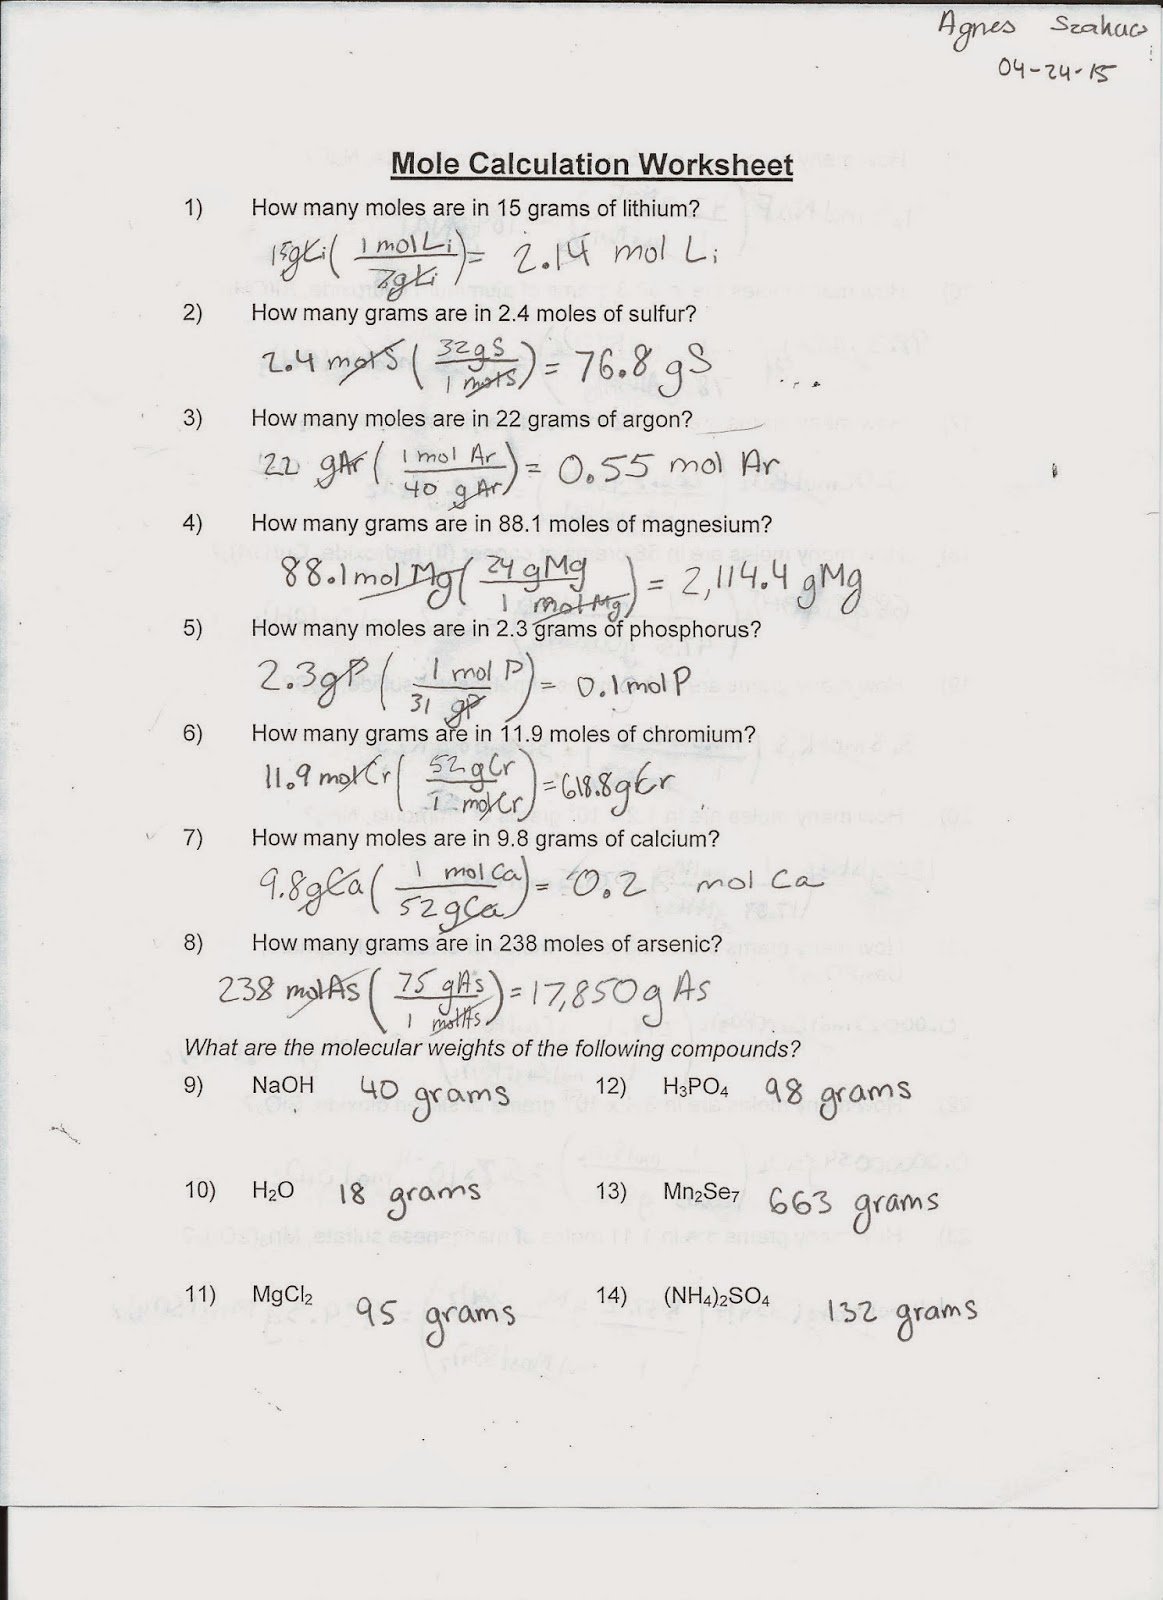 Agnes Szakacs
04-24-15
Mole Calculation Worksheet
1) How many moles are in 15 grams of lithium?
15gLi ( 1 mol Li / 7gLi ) = 2.14 mol Li
2) How many grams are in 2.4 moles of sulfur?
2.4 molS ( 32gS / 1 molS ) = 76.8 gS
3) How many moles are in 22 grams of argon?
22 gAr ( 1 mol Ar / 40 gAr ) = 0.55 mol Ar
4) How many grams are in 88.1 moles of magnesium?
88.1 mol Mg ( 24 gMg / 1 mol Mg ) = 2,114.4 gMg
5) How many moles are in 2.3 grams of phosphorus?
2.3gP ( 1 mol P / 31 gP ) = 0.1 mol P
6) How many grams are in 11.9 moles of chromium?
11.9 molCr ( 52gCr / 1 molCr ) = 618.8gCr
7) How many moles are in 9.8 grams of calcium?
9.8gCa ( 1 mol Ca / 52gCa ) = 0.2 mol Ca
8) How many grams are in 238 moles of arsenic?
238 molAs ( 75 gAs / 1 molAs ) = 17,850g As
What are the molecular weights of the following compounds?
9) NaOH 40 grams 12) H₃PO₄ 98 grams
10) H₂O 18 grams 13) Mn₂Se₇ 663 grams
11) MgCl₂ 95 grams 14) (NH₄)₂SO₄ 132 grams